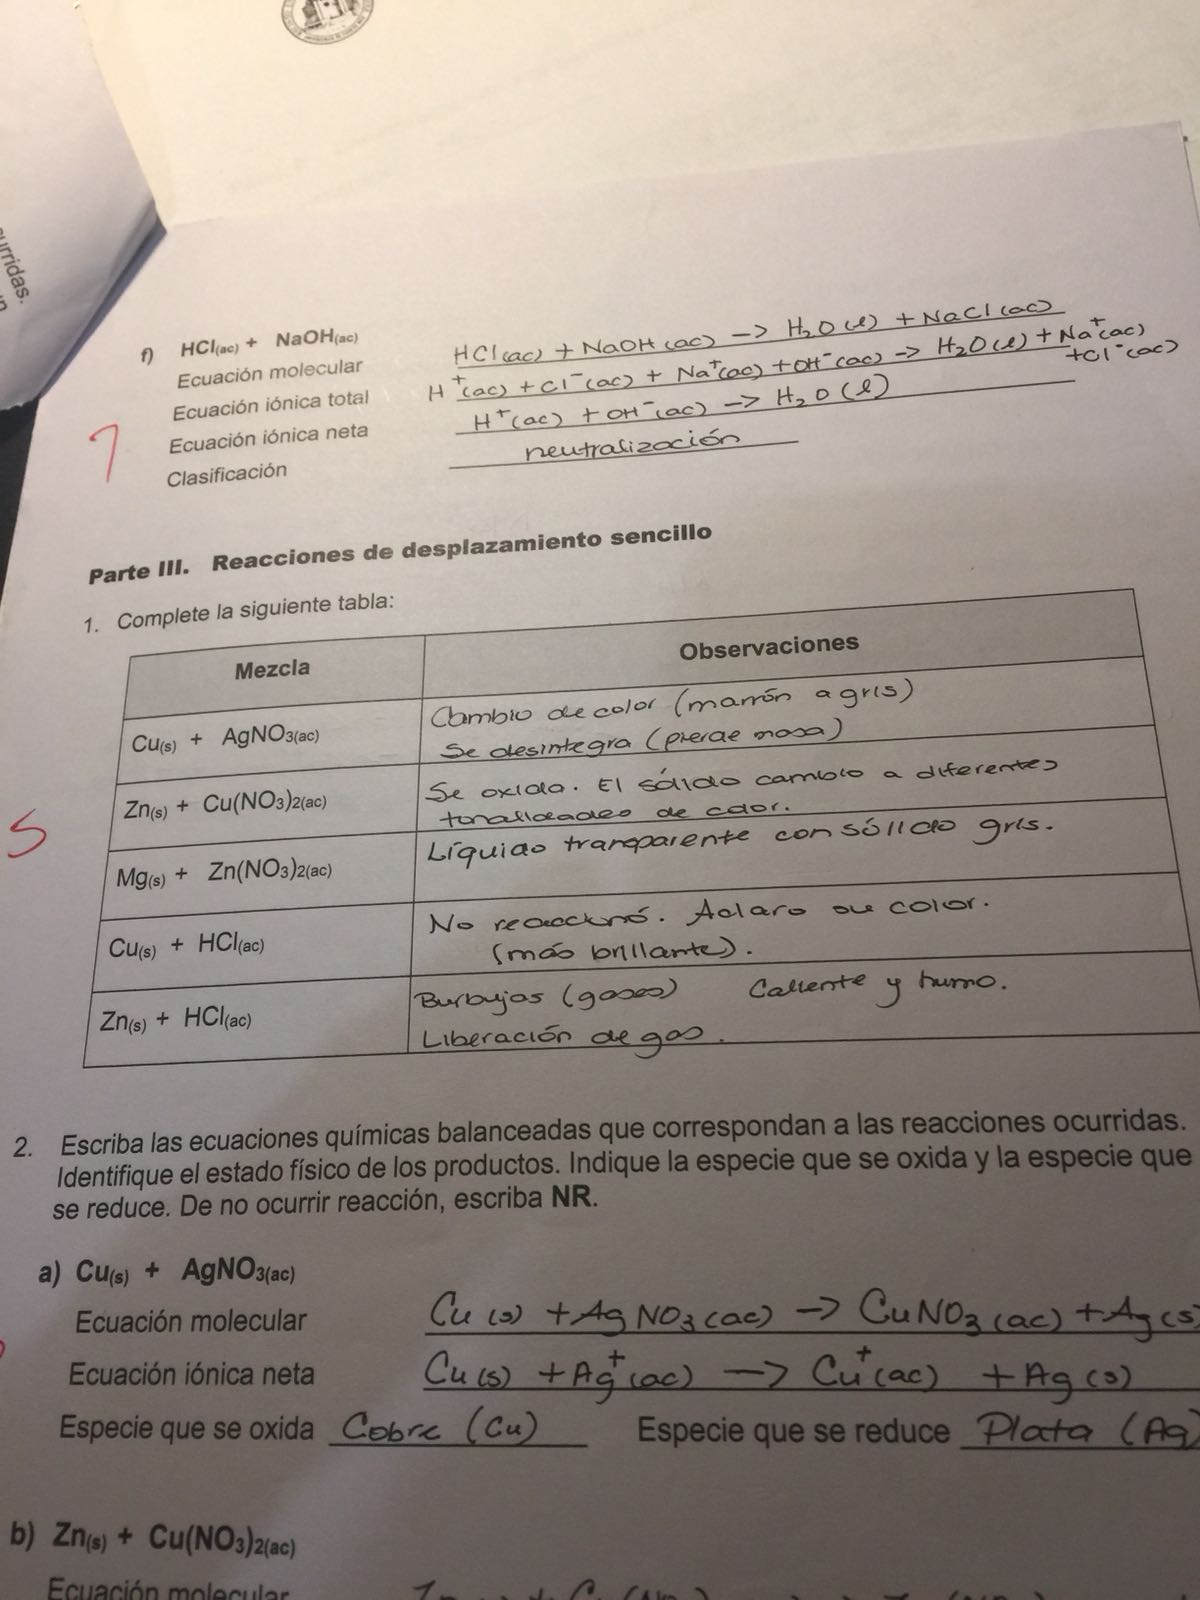 urridas.
f) HCl(ac) + NaOH(ac)
HCl(ac) + NaOH(ac) -> H₂O(l) + NaCl(ac)
Ecuación molecular
H⁺(ac) + Cl⁻(ac) + Na⁺(ac) + OH⁻(ac) -> H₂O(l) + Na⁺(ac)
+Cl⁻(ac)
Ecuación iónica total
H⁺(ac) + OH⁻(ac) -> H₂O(l)
Ecuación iónica neta
neutralización
Clasificación
7
Parte III. Reacciones de desplazamiento sencillo
1. Complete la siguiente tabla:
Mezcla Observaciones
Cu(s) + AgNO3(ac) Cambio de color (marrón a gris)
Se desintegra (pierde masa)
Zn(s) + Cu(NO3)2(ac) Se oxida. El sólido cambio a diferentes
tonalidades de color.
5
Mg(s) + Zn(NO3)2(ac) Líquido transparente con sólido gris.
Cu(s) + HCl(ac) No reaccionó. Aclaro su color.
(más brillante).
Zn(s) + HCl(ac) Burbujas (gases) Caliente y humo.
Liberación de gas.
2. Escriba las ecuaciones químicas balanceadas que correspondan a las reacciones ocurridas.
Identifique el estado físico de los productos. Indique la especie que se oxida y la especie que
se reduce. De no ocurrir reacción, escriba NR.
a) Cu(s) + AgNO3(ac)
Ecuación molecular Cu(s) + AgNO₃(ac) -> CuNO₃(ac) + Ag(s)
Ecuación iónica neta Cu(s) + Ag⁺(ac) -> Cu⁺(ac) + Ag(s)
Especie que se oxida Cobre (Cu) Especie que se reduce Plata (Ag)
b) Zn(s) + Cu(NO3)2(ac)
Ecuación molecular